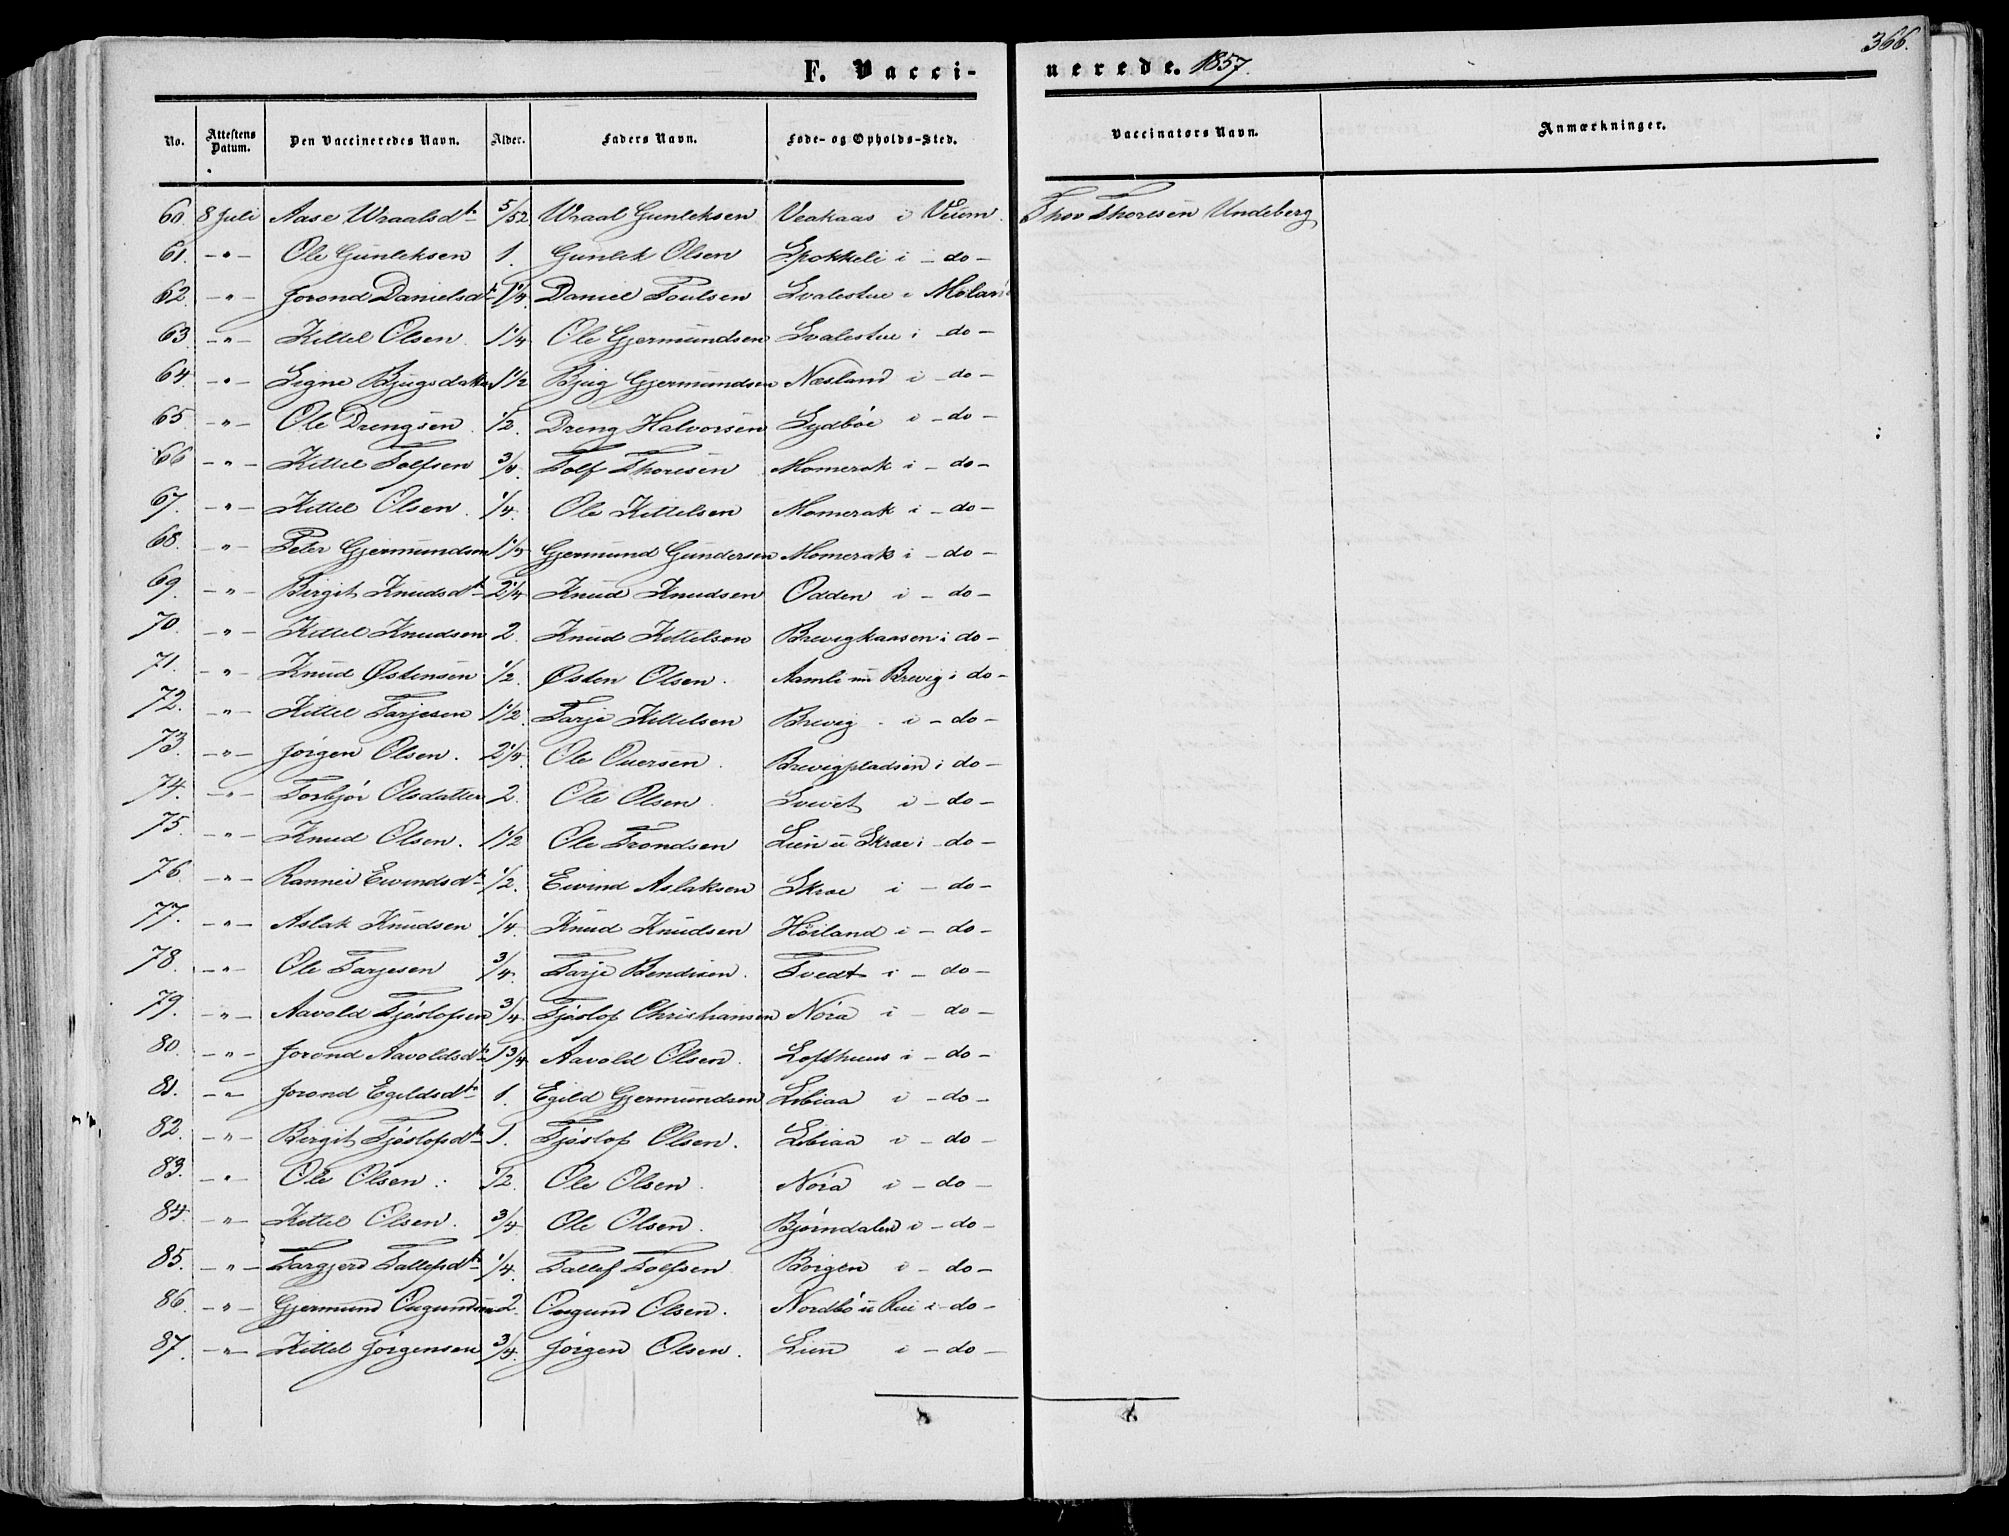 366.
F. Vacci- nerede. 1857.
No. Attestens Datum. Den Vaccineredes Navn. Alder. Faders Navn. Føde- og Opholds-Sted. Vaccinators Navn. Anmærkninger.
60. 8 Juli Aase Wraalsdtr 5/52 Wraal Gunleksen Veakaas i Veum. Thov Thoresen Undeberg
61. -"- Ole Gunleksen 1. Gunlek Olsen Spokkeli i - do -
62. -"- Jorond Danielsdtr 1 1/4. Daniel Svalestue i Moland
63. -"- Kittel Olsen. 1 1/4 Ole Gjermundsen Svalestue i - do -
64. -"- Signe Bjugsdatter 1 1/2 Bjug Gjermundsen Næsland i - do -
65. -"- Ole Drengsen. 1/2. Dreng Halvorsen Sydbøe i - do -
66 -"- Kittel Tolfsen 3/4. Tolf Thoresen Momerak i - do -
67. -"- Kittel Olsen. 1/4. Ole Kittelsen Momerak i - do -
68. -"- Peter Gjermundsen 1 1/2 Gjermund Gundersen Momerak i - do -
69. -"- Birgit Knudsdtr 2 1/4 Knud Knudsen Odden i - do -
70. -"- Kittel Knudsen 2. Knud Kittelsen Brevigkaasen i do -
71. -"- Knud Østensen 1/2. Østen Olsen. Aamli un Brevig i do -
72. -"- Kittel Tarjesen 1 1/2 Tarje Kittelsen Brevig. i - do -
73. -"- Jørgen Olsen. 2 1/4. Ole Brevigpladsen i do -
74. -"- Torbjør Olsdatter 2. Ole Olsen. i - do -
75. -"- Knud Olsen. 1 1/2 Ole Trondsen Lien u Skroe i - do -
76. -"- Rannei Eivindsdtr 1/2. Eivind Aslaksen Skroe i - do -
77. -"- Aslak Knudsen 1/4. Knud Knudsen Høiland i - do -
78. -"- Ole Tarjesen 3/4. Tarje Bendixen. Tvedt i - do -
79. -"- Aavold Tjøslofsen 3/4 Tjøslof Christiansen Nora i - do -
80. -"- Jorond Aavoldsdtr 1 3/4 Aavold Olsen. Lofthuus i - do -
81. -"- Jorond Egildsdtr 1. Egild Gjermundsen Libiaa i - do -
82. -"- Birgit Tjøslofsdtr 1. Tjøslof Olsen. Libiaa i - do -
83. -"- Ole Olsen. 1/2. Ole Olsen. Nora i - do -
84. -"- Kittel Olsen. 3/4 Ole Olsen. Bjørndalen i - do -
85. -"- Targjerd Tallefsdtr 1/4. Tallef Tolfsen Borgen i - do -
86. -"- Gjermund Ougundsen 2. Ougund Olsen. Nordbø u Rui i - do -
87. -"- Kittel Jørgensen 3/4. Jørgen Olsen. Lien i - do -